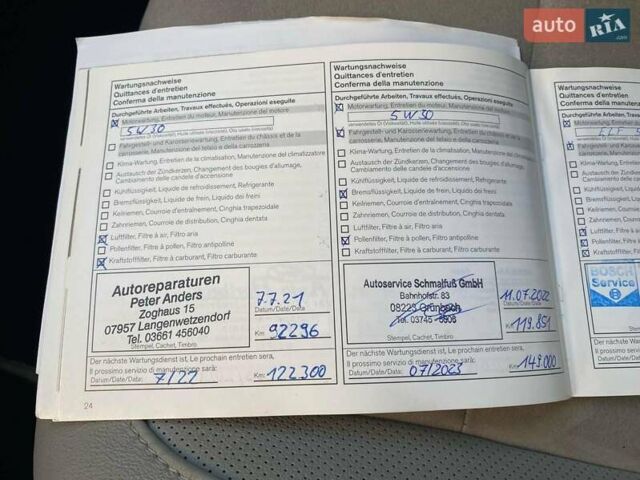 auto RIA.com
Wartungsnachweise
Quittances d'entretien
Conferma della manutenzione
Durchgeführte Arbeiten, Travaux effectués, Operazioni eseguite
Motorwartung, Entretien du moteur, Manutenzione del motore
5W30
Verwendetes Öl (Viskosität), Huile utilisée (viscosité), Olio usato (viscosità)
Fahrgestell- und Karosseriewartung, Entretien du châssis et de la
carrosserie, Manutenzione del telaio e della carrozzeria
Klima-Wartung, Entretien de la climatisation, Manutenzione del climatizzatore
Austausch der Zündkerzen, Changement des bougies d'allumage,
Cambiamento delle candele d'accensione
Kühlflüssigkeit, Liquide de refroidissement, Refrigerante
Bremsflüssigkeit, Liquide de frein, Liquido dei freini
Keilriemen, Courroie d'entraînement, Cinghia trapezoidale
Zahnriemen, Courroie de distribution, Cinghia dentata
Luftfilter, Filtre à air, Filtro aria
Pollenfilter, Filtre à pollen, Filtro antipolline
Kraftstofffilter, Filtre à carburant, Filtro carburante
Autoreparaturen
Peter Anders
Zoghaus 15
07957 Langenwetzendorf
Tel. 03661 456040
7.7.21
Datum/Date/Data
Km 92296
Stempel, Cachet, Timbro
Der nächste Wartungsdienst ist, Le prochain entretien sera,
Il prossimo servizio di manutenzione sarà:
Datum/Date/Data: 7/22
Km: 122.300
24
Wartungsnachweise
Quittances d'entretien
Conferma della manutenzione
Durchgeführte Arbeiten, Travaux effectués, Operazioni eseguite
Motorwartung, Entretien du moteur, Manutenzione del motore
5W30
Verwendetes Öl (Viskosität), Huile utilisée (viscosité), Olio usato (viscosità)
Fahrgestell- und Karosseriewartung, Entretien du châssis et de la
carrosserie, Manutenzione del telaio e della carrozzeria
Klima-Wartung, Entretien de la climatisation, Manutenzione del climatizzatore
Austausch der Zündkerzen, Changement des bougies d'allumage,
Cambiamento delle candele d'accensione
Kühlflüssigkeit, Liquide de refroidissement, Refrigerante
Bremsflüssigkeit, Liquide de frein, Liquido dei freini
Keilriemen, Courroie d'entraînement, Cinghia trapezoidale
Zahnriemen, Courroie de distribution, Cinghia dentata
Luftfilter, Filtre à air, Filtro aria
Pollenfilter, Filtre à pollen, Filtro antipolline
Kraftstofffilter, Filtre à carburant, Filtro carburante
Autoservice Schmalfuß GmbH
Bahnhofstr. 83
08223 Grünbach
Tel. 03745
11.07.2022
Datum/Date/Data
Km 119.851
Stempel, Cachet, Timbro
Der nächste Wartungsdienst ist, Le prochain entretien sera,
Il prossimo servizio di manutenzione sarà:
Datum/Date/Data: 07/2023
Km: 149.000
BOSCH
Service
Stempel